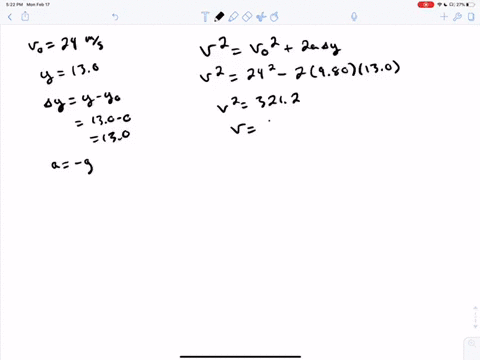 5:22 PM Mon Feb 17
27%
v₀ = 24 m/s
y = 13.0
Δy = y - y₀
= 13.0 - 0
= 13.0
a = -g
v² = v₀² + 2aΔy
v² = 24² - 2(9.80)(13.0)
v² = 321.2
v =